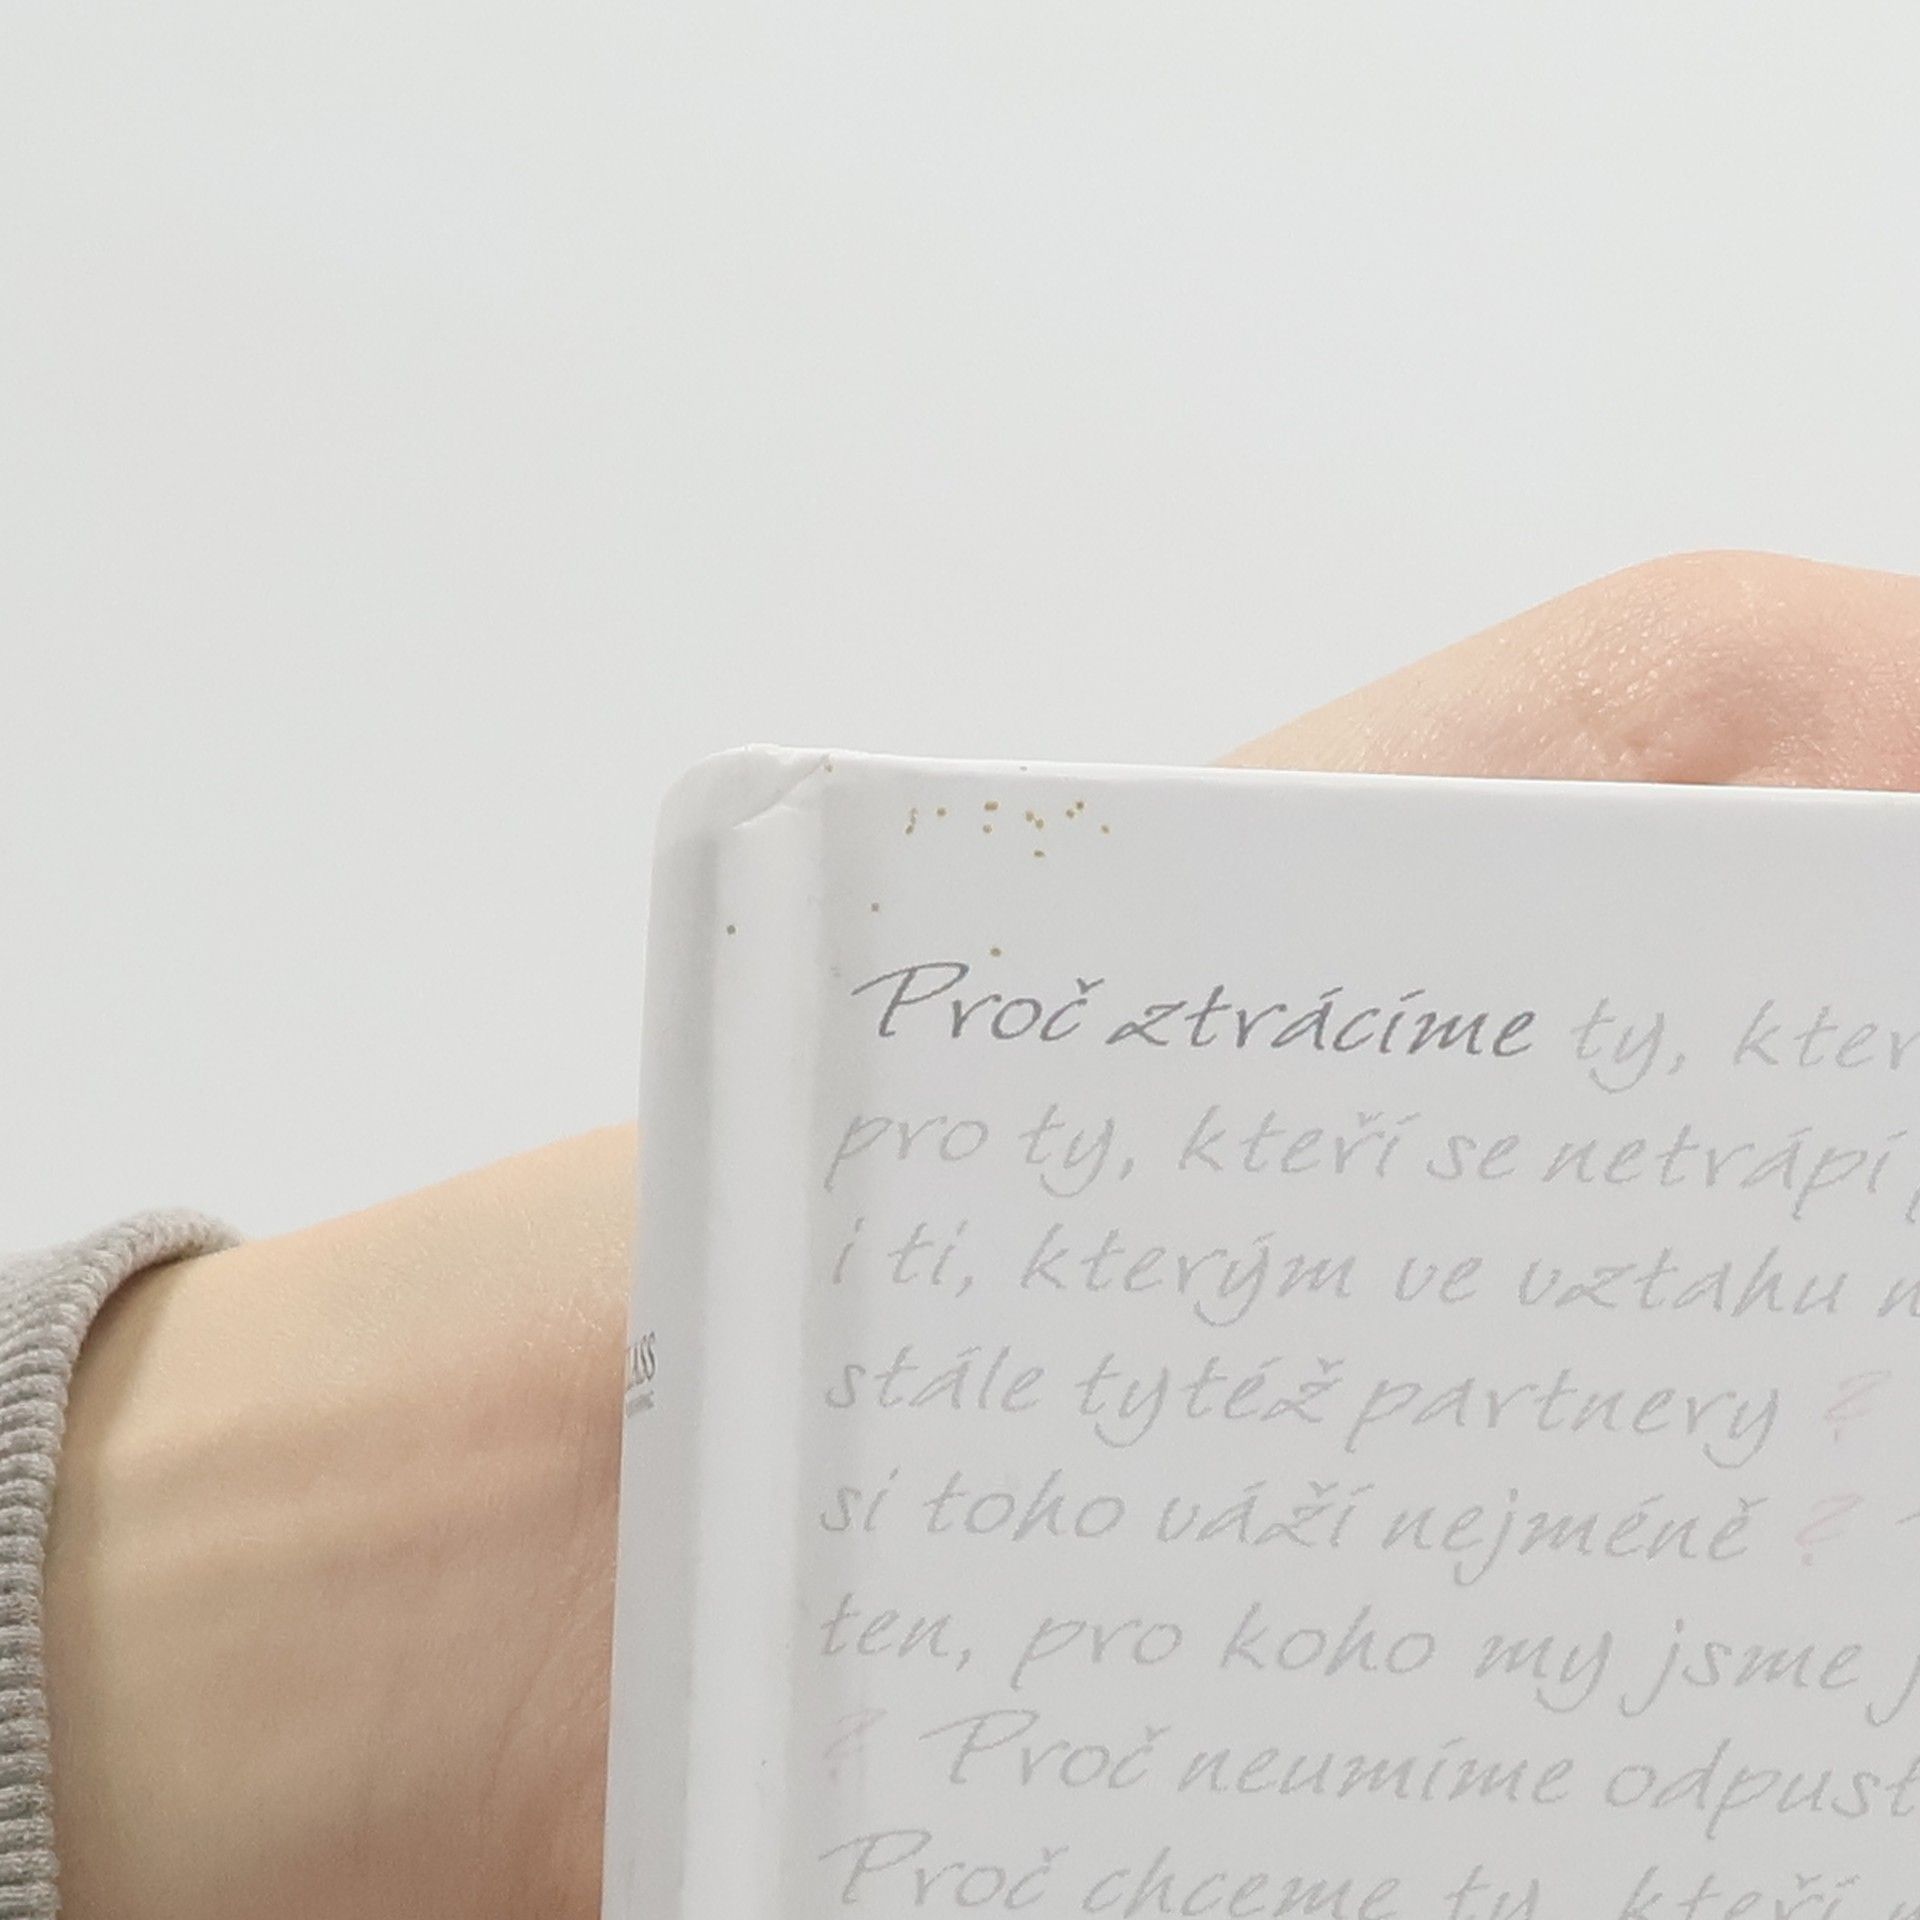 Proč ztrácíme ty,
pro ty, kteří se netrápí
i ti, kterým ve vztahu
stále tytéž partnery ?
si toho váží nejméně ?
ten, pro koho my jsme
? Proč neumíme
Proč chceme ty, kteří